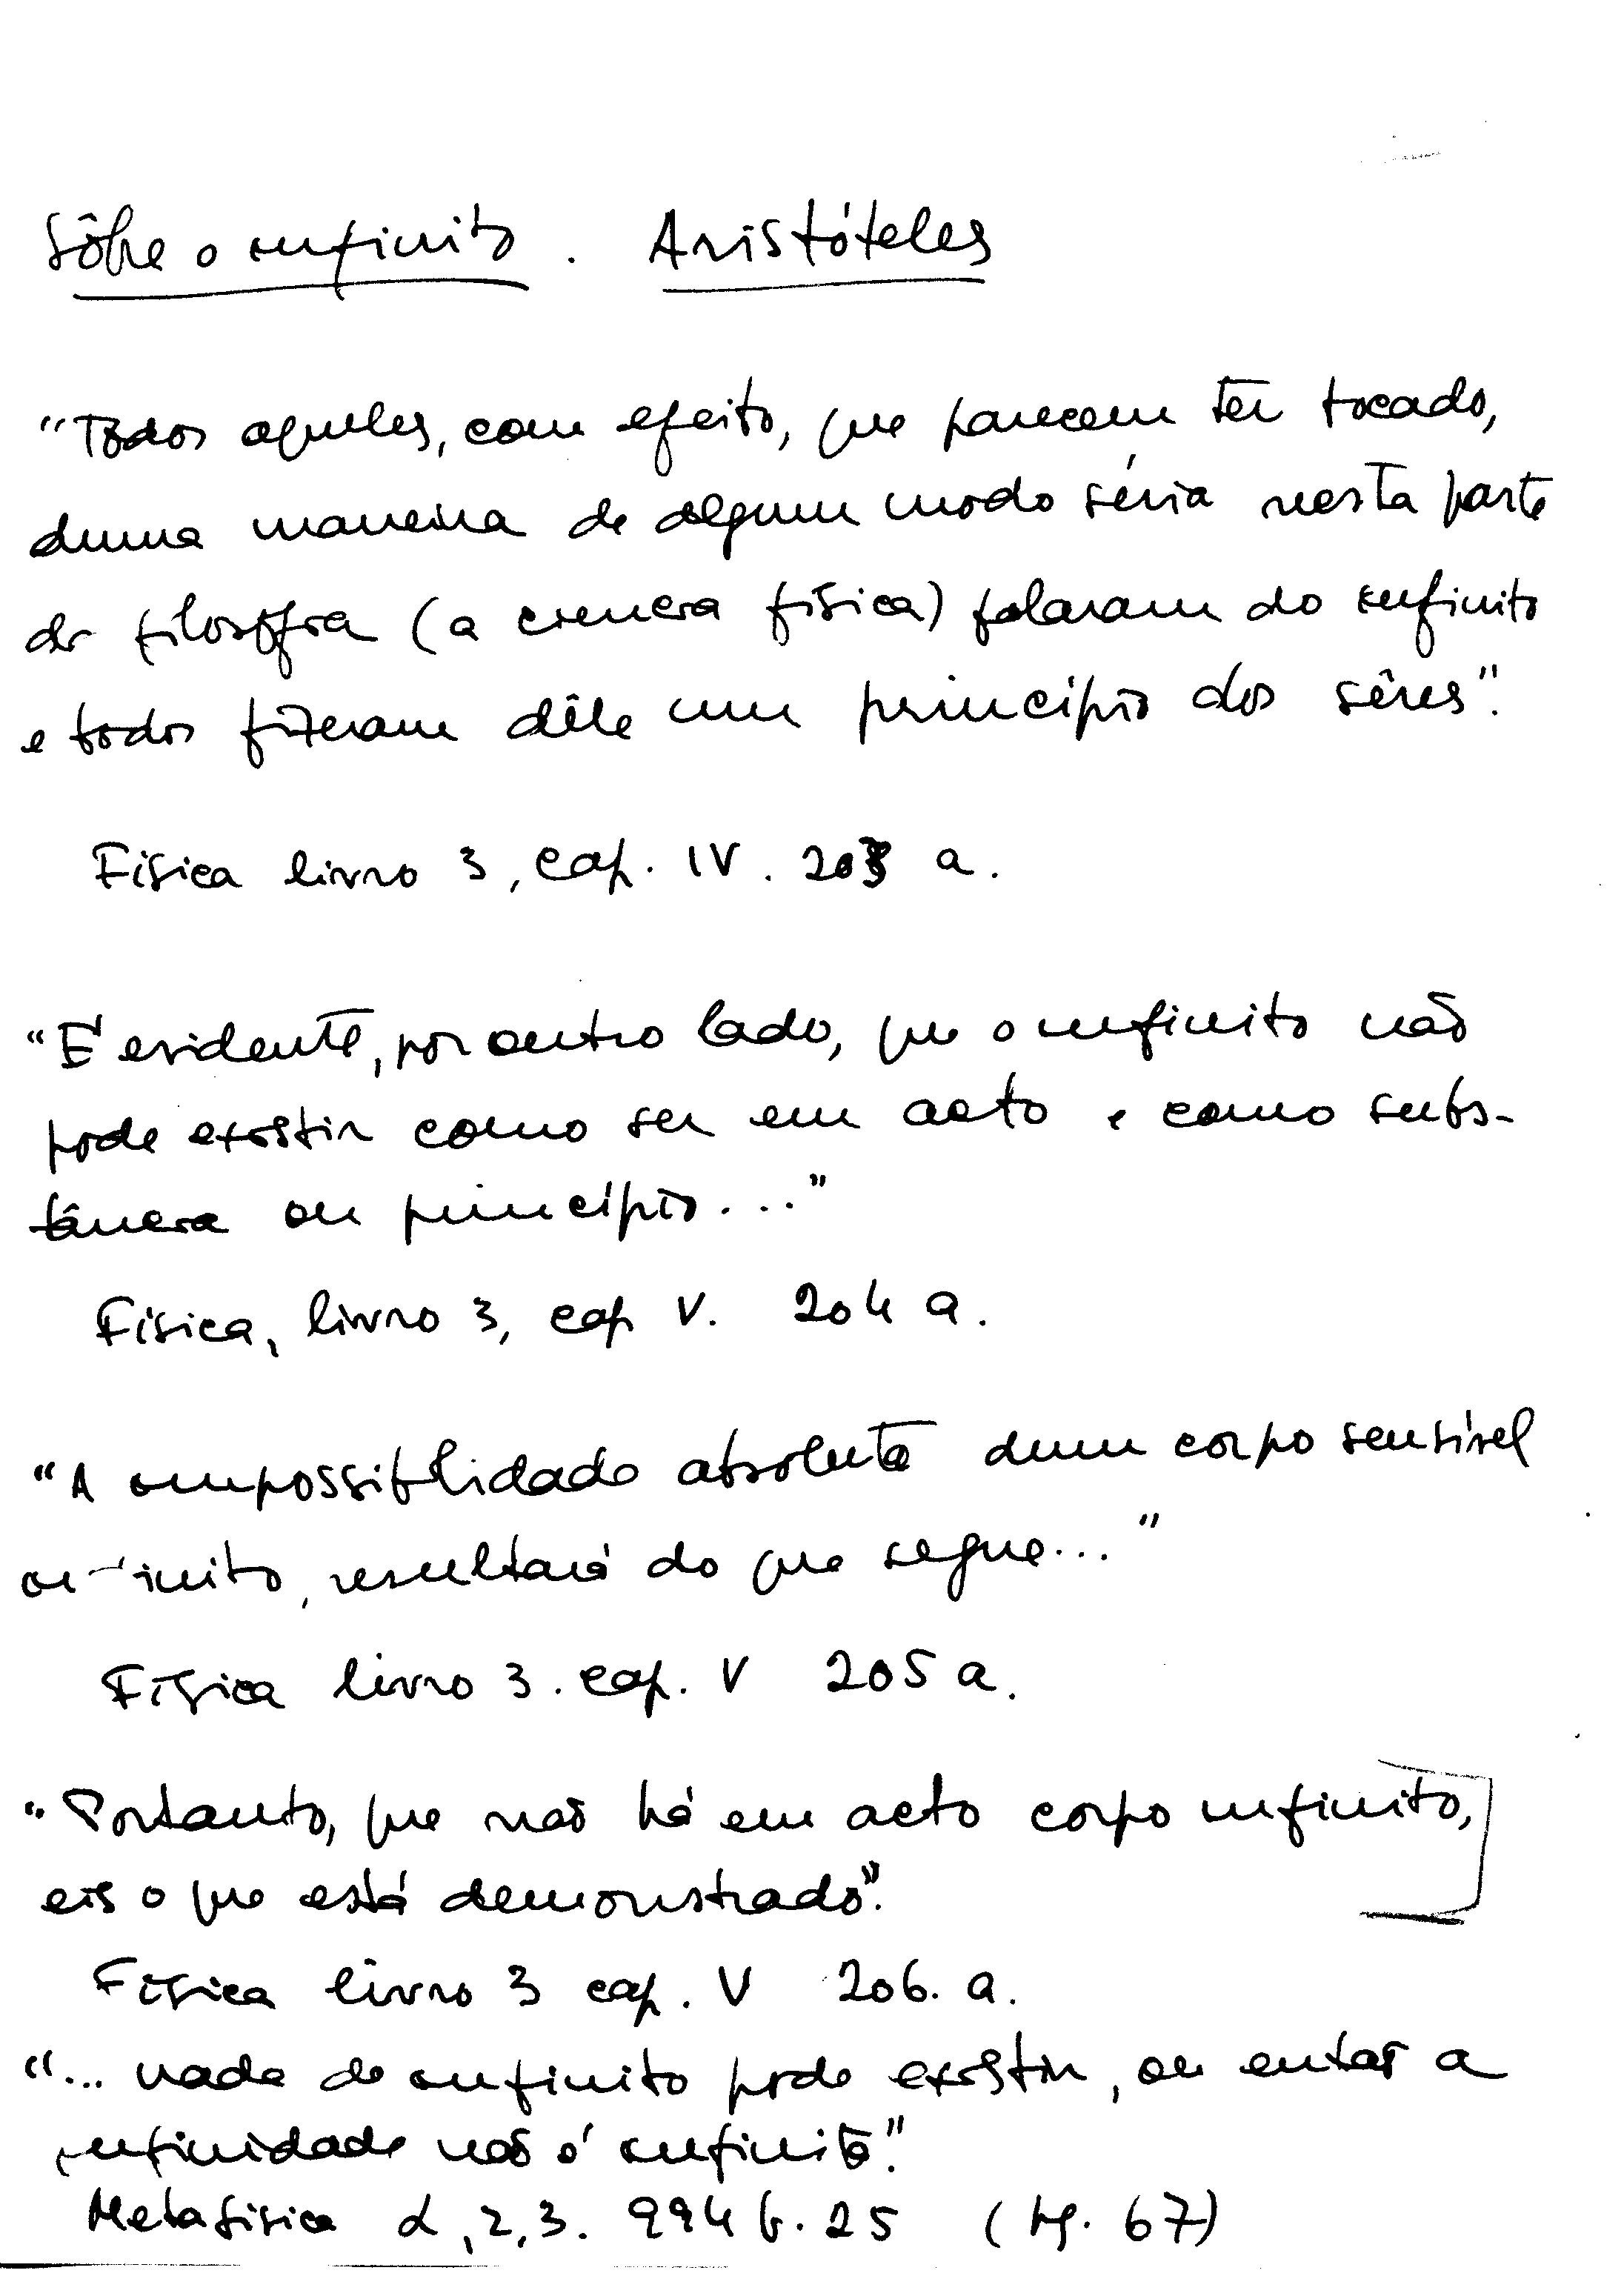 Sôbre o infinito. Aristóteles
"Todos aqueles, com efeito, que parecem ter tocado,
duma maneira de algum modo séria nesta parte
da filosofia (a ciência física) falaram do infinito
e todos fizeram dêle um princípio dos sêres".
Física livro 3, cap. IV. 203 a.
"É evidente, por outro lado, que o infinito não
pode existir como ser em acto e como subs-
tância ou princípio..."
Física, livro 3, cap V. 204 a.
"A impossibilidade absoluta dum corpo sensível
infinito, resultará do que segue..."
Física livro 3. cap. V 205 a.
"Portanto, que não há em acto corpo infinito,
eis o que está demonstrado".
Física livro 3 cap. V 206. a.
"... nada de infinito pode existir, ou então a
infinidade não é infinita".
Metafísica α, 2, 3. 994 b. 25 (pg. 67)